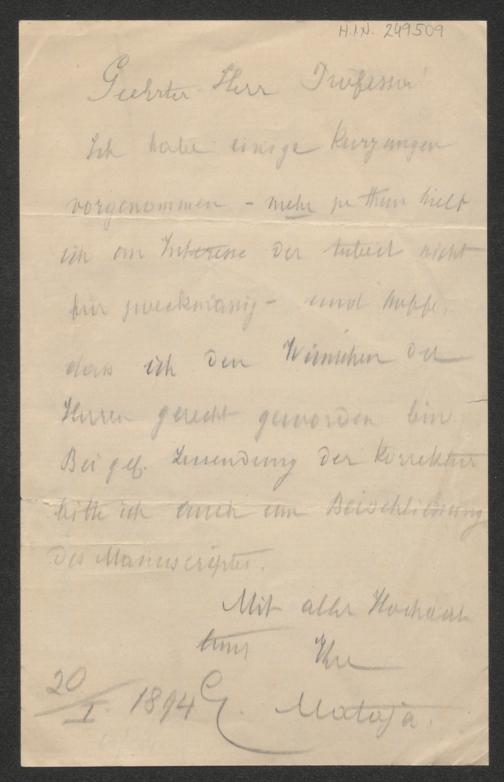 H.I.N. 249509
Geehrter Herr Professor!
Ich habe einige Kürzungen
vorgenommen – mehr zu thun hielt
ich im Interesse der Arbeit nicht
für zweckmässig – und hoffe,
dass ich den Wünschen der
Herren gerecht geworden bin
Bei gef. Zusendung der Korrektur
bitte ich auch um Beischliessung
des Manuscriptes.
Mit aller Hochach
tung Ihr
20/I. 1894 E. Mataja.